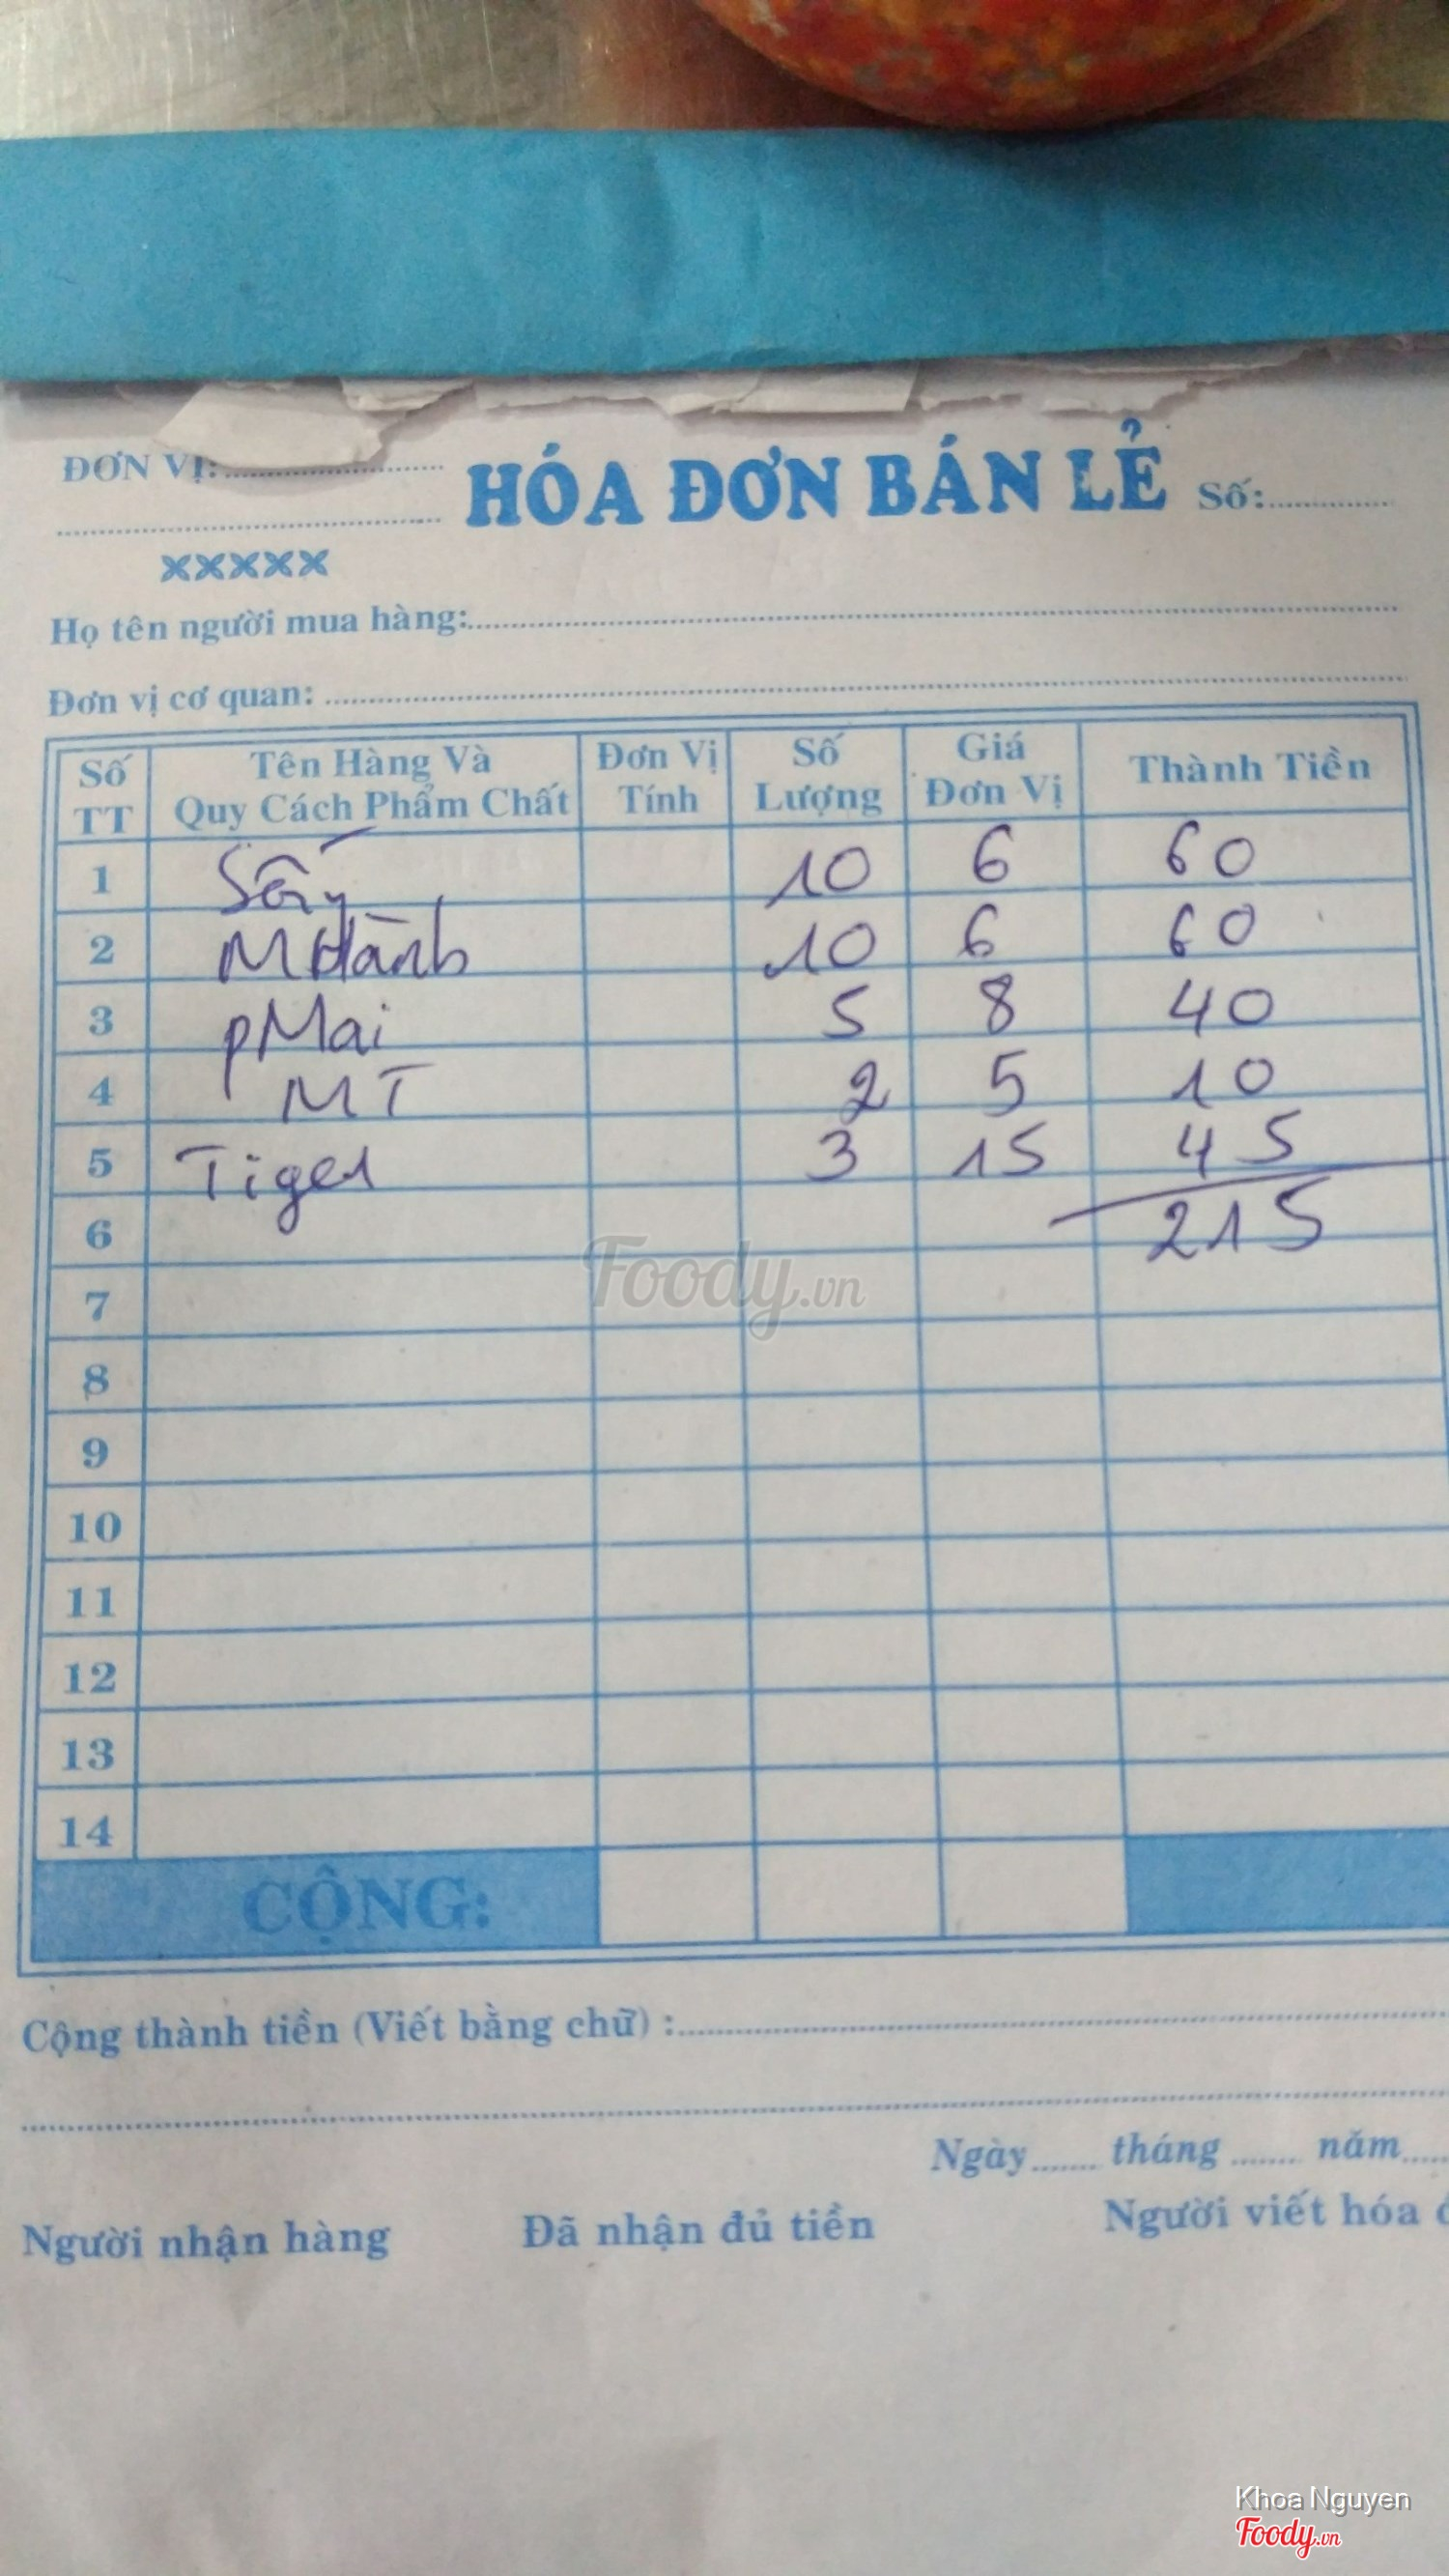 ĐƠN VỊ:
HÓA ĐƠN BÁN LẺ Số:
xxxxx
Họ tên người mua hàng:
Đơn vị cơ quan:
Số TT Tên Hàng Và Quy Cách Phẩm Chất Đơn Vị Tính Số Lượng Giá Đơn Vị Thành Tiền
1 10 6 60
2 MHành 10 6 60
3 pMai 5 8 40
4 MT 2 5 10
5 Tiger 3 15 45
6 215
Foody.vn
7
8
9
10
11
12
13
14
CỘNG:
Cộng thành tiền (Viết bằng chữ) :
Ngày tháng năm
Người nhận hàng Đã nhận đủ tiền Người viết hóa
Khoa Nguyen
Foody.vn